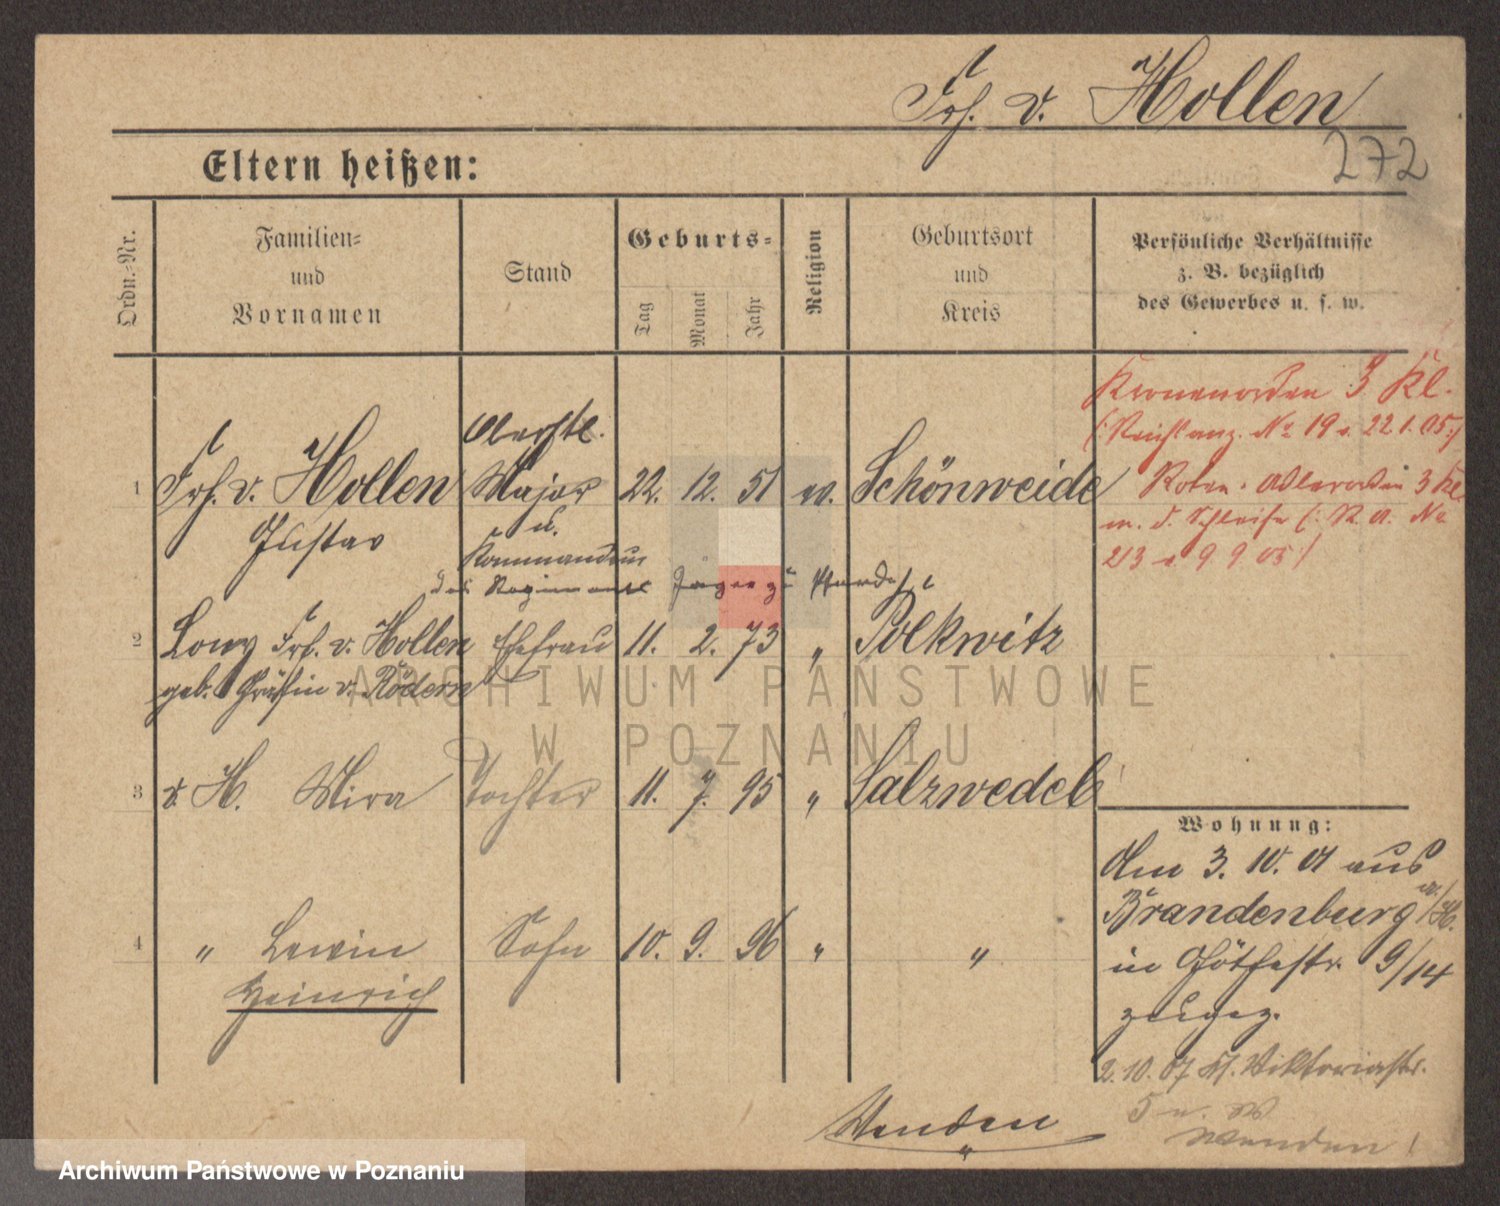 Frh. v. Hollen
272
Eltern heißen:
Ordn.-Nr.
Familien-
und
Vornamen
Stand
Geburts-
Tag
Monat
Jahr
Religion
Geburtsort
und
Kreis
Persönliche Verhältnisse
z. B. bezüglich
des Gewerbes u. s. w.
Kronenorden 3 Kl.
(: Reichsanz. No 19 v. 22 1. 05 :)
Roten Adlerorden 3 Kl
m. d. Schleife (: R. A. No
213 v 9 9 05 :)
Oberstl.
1 Frh. v. Hollen Major 22. 12. 51 ev. Schönweide
Gustav u.
Kommandeur
des Regiments Jäger zu Pferde
2 Lony Frh. v. Hollen Ehefrau 11. 2. 73 " Polkwitz
geb. Gräfin v. Rödern
3 v. H. Mira Tochter 11. 7. 95 " Salzwedel
4 " Lewin Sohn 10. 9. 96 " "
Heinrich
Wohnung:
Am 3. 10. 01 aus
Brandenburg a/H.
in Göthestr. 9/14
zugez.
2. 10. 07 Viktoriastr.
5
Wenden!
Wenden
ARCHIWUM PAŃSTWOWE
W POZNANIU
Archiwum Państwowe w Poznaniu